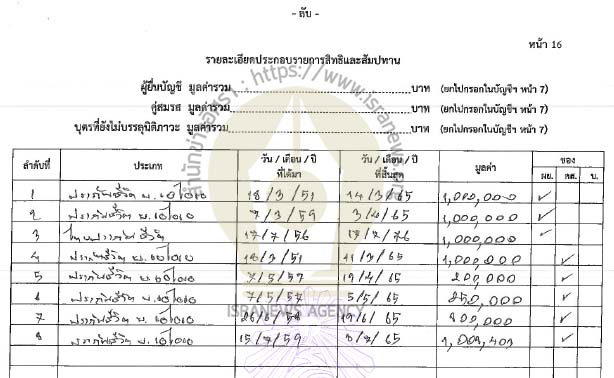 - ลับ -
หน้า 16
รายละเอียดประกอบรายการสิทธิและสัมปทาน
ผู้ยื่นบัญชี มูลค่ารวม บาท (ยกไปกรอกในบัญชีฯ หน้า 7)
คู่สมรส มูลค่ารวม บาท (ยกไปกรอกในบัญชีฯ หน้า 7)
บุตรที่ยังไม่บรรลุนิติภาวะ มูลค่ารวม บาท (ยกไปกรอกในบัญชีฯ หน้า 7)
ลำดับที่ ประเภท วัน / เดือน / ปี ที่ได้มา วัน / เดือน / ปี ที่สิ้นสุด มูลค่า ของ
ผย. คส. บ.
1 ประกันชีวิต 18/3/51 14/3/65 1,000,000 ✓
2 ประกันชีวิต 7/3/59 3/4/65 1,000,000 ✓
3 ไทยประกันชีวิต 17/7/56 17/7/76 1,000,000 ✓
4 ประกันชีวิต 18/3/51 1,000,000 ✓
5 ประกันชีวิต 7/5/57 19/4/65 200,000 ✓
6 ประกันชีวิต 7/5/57 5/5/65 250,000 ✓
7 ประกันชีวิต 19/6/65 ✓
8 ประกันชีวิต 15/7/59 ✓
สำนักข่าวอิศรา : https://www.isranews.org
ISRANEWS AGENCY